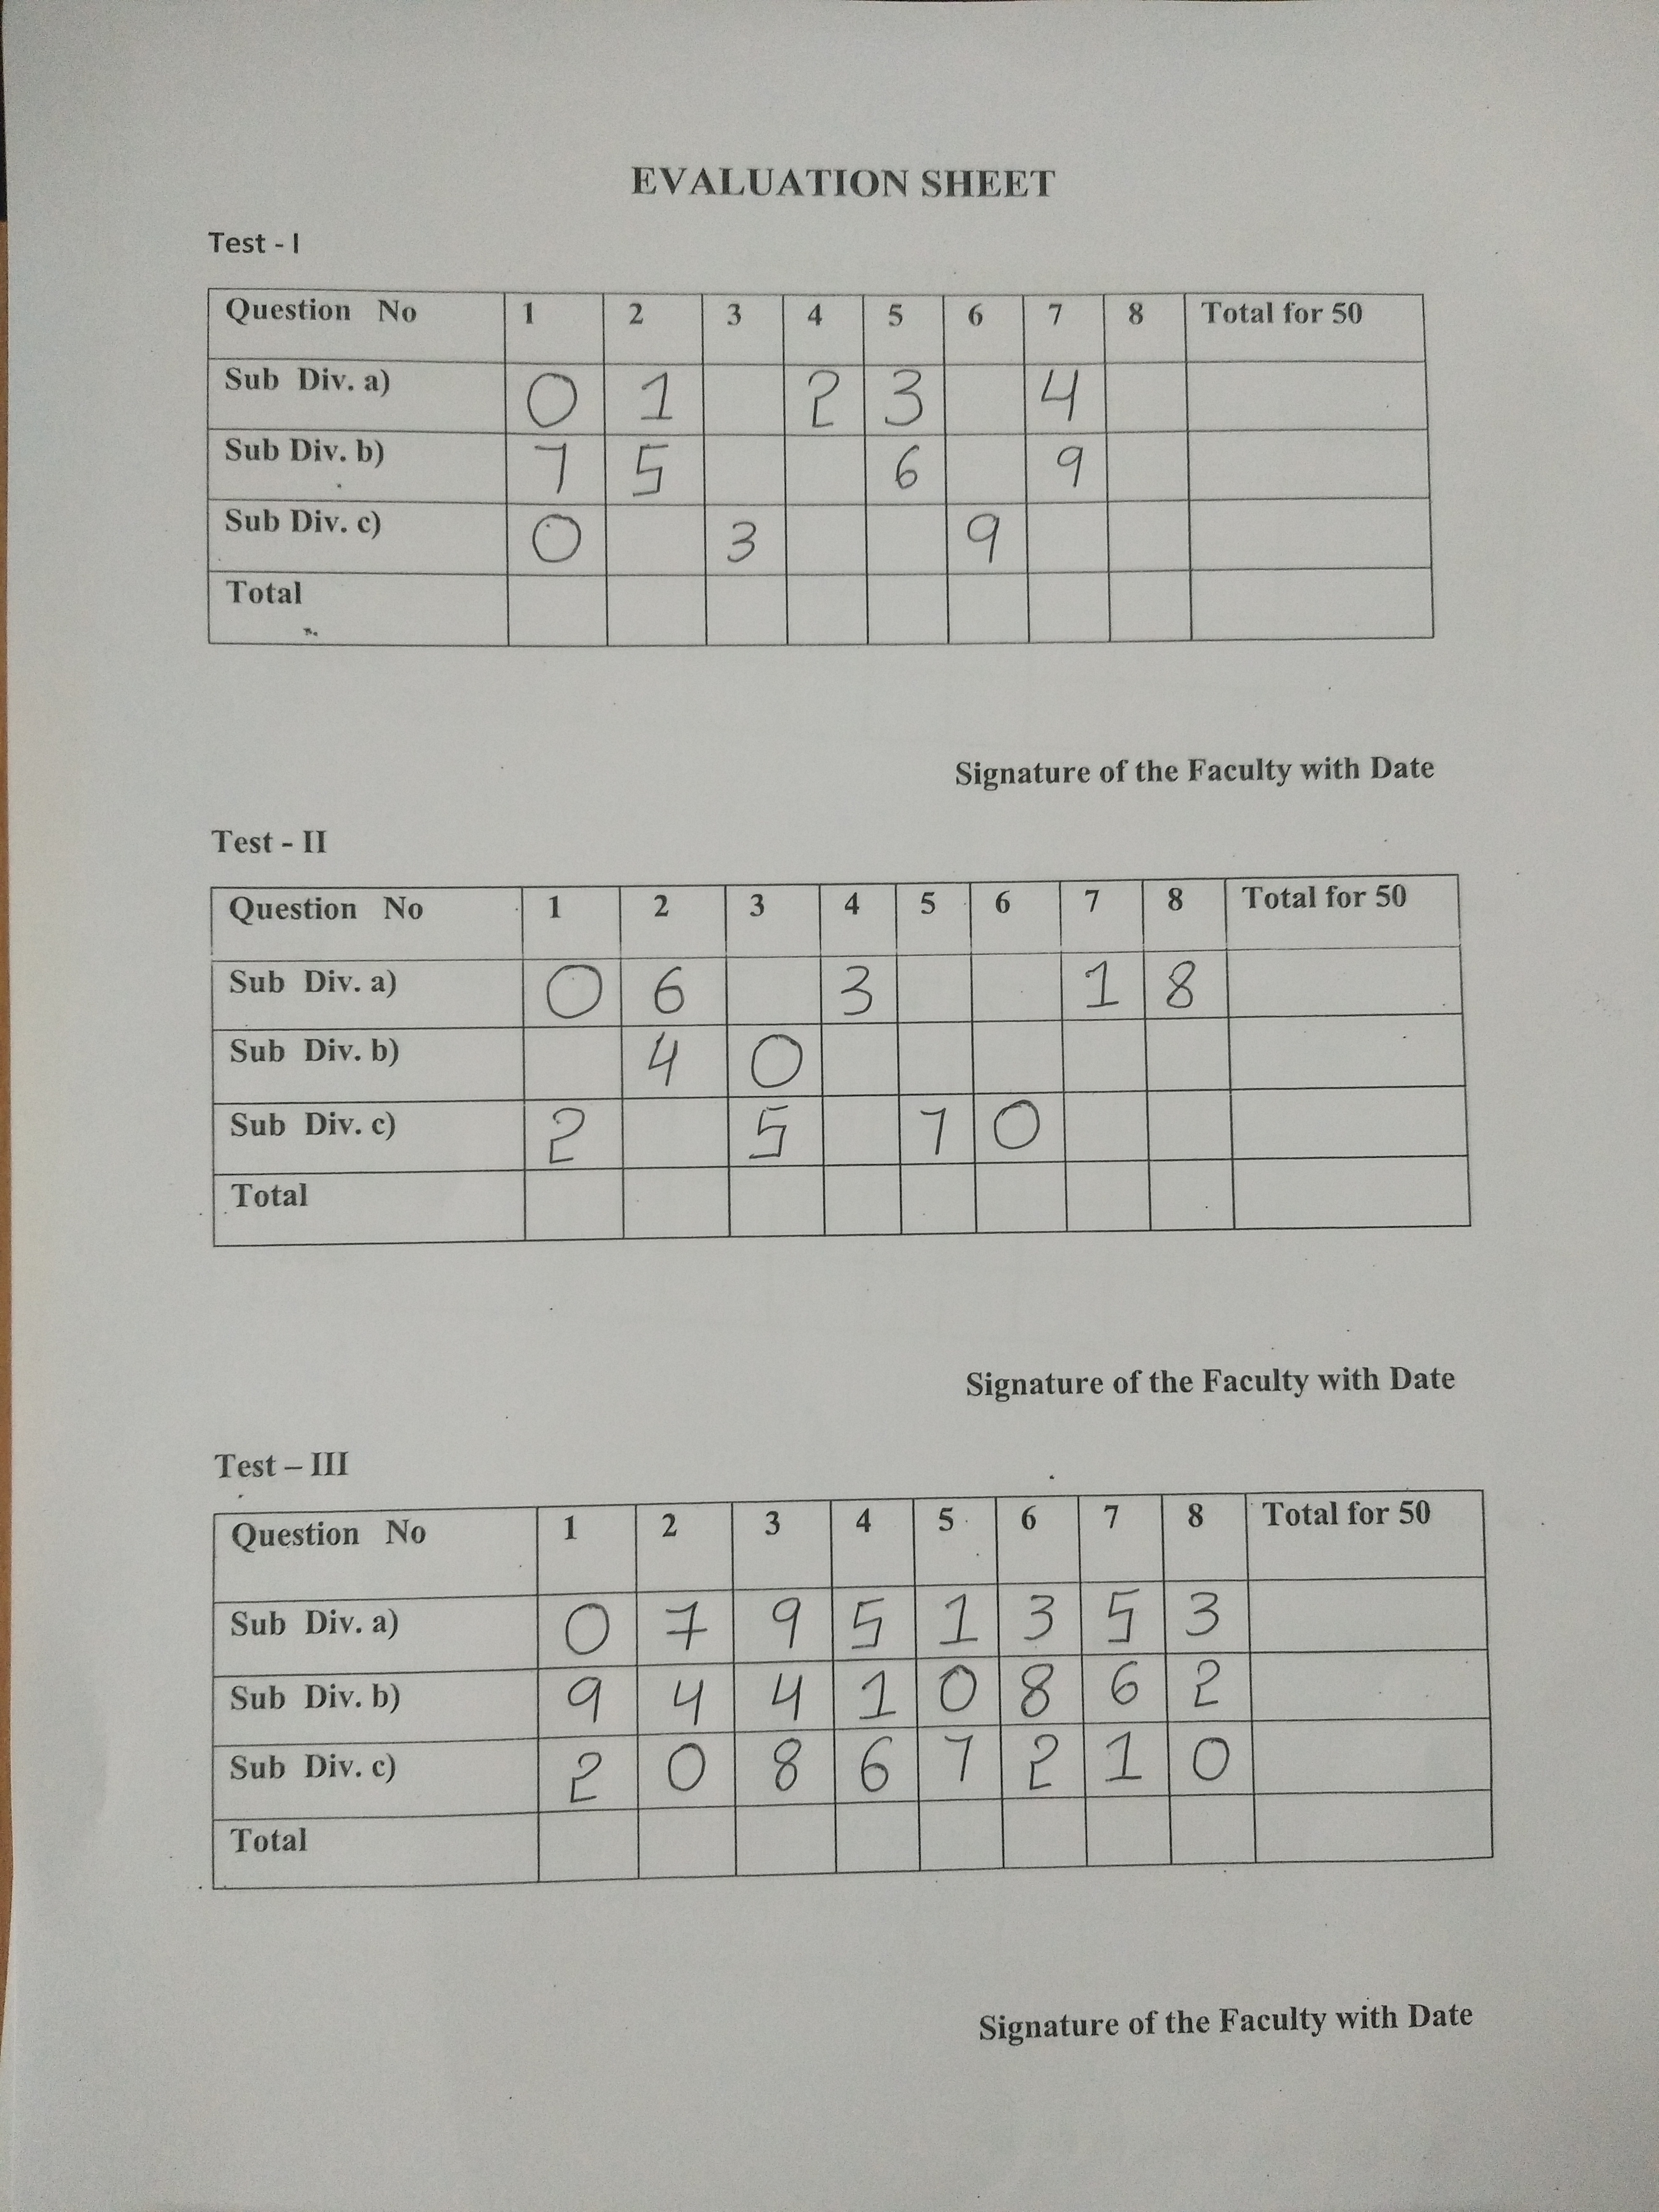 EVALUATION SHEET
Test - I
Question No 1 2 3 4 5 6 7 8 Total for 50
Sub Div. a) 0 1 2 3 4
Sub Div. b) 7 5 6 9
Sub Div. c) 0 3 9
Total
Signature of the Faculty with Date
Test - II
Question No 1 2 3 4 5 6 7 8 Total for 50
Sub Div. a) 0 6 3 1 8
Sub Div. b) 4 0
Sub Div. c) 2 5 7 0
Total
Signature of the Faculty with Date
Test – III
Question No 1 2 3 4 5 6 7 8 Total for 50
Sub Div. a) 0 7 9 5 1 3 5 3
Sub Div. b) 9 4 4 1 0 8 6 2
Sub Div. c) 2 0 8 6 7 2 1 0
Total
Signature of the Faculty with Date